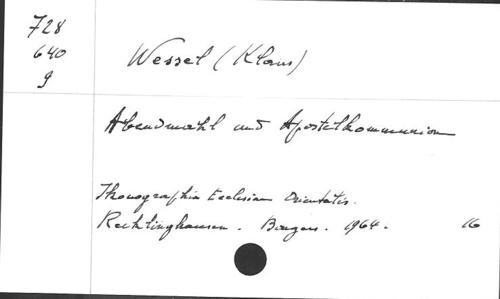 728
640
9
Wessel (Klaus)
Abendmahl und Apostelkommunion
Ikonographia Ecclesiae Orientalis.
Recklinghausen. Bongers. 1964. 16